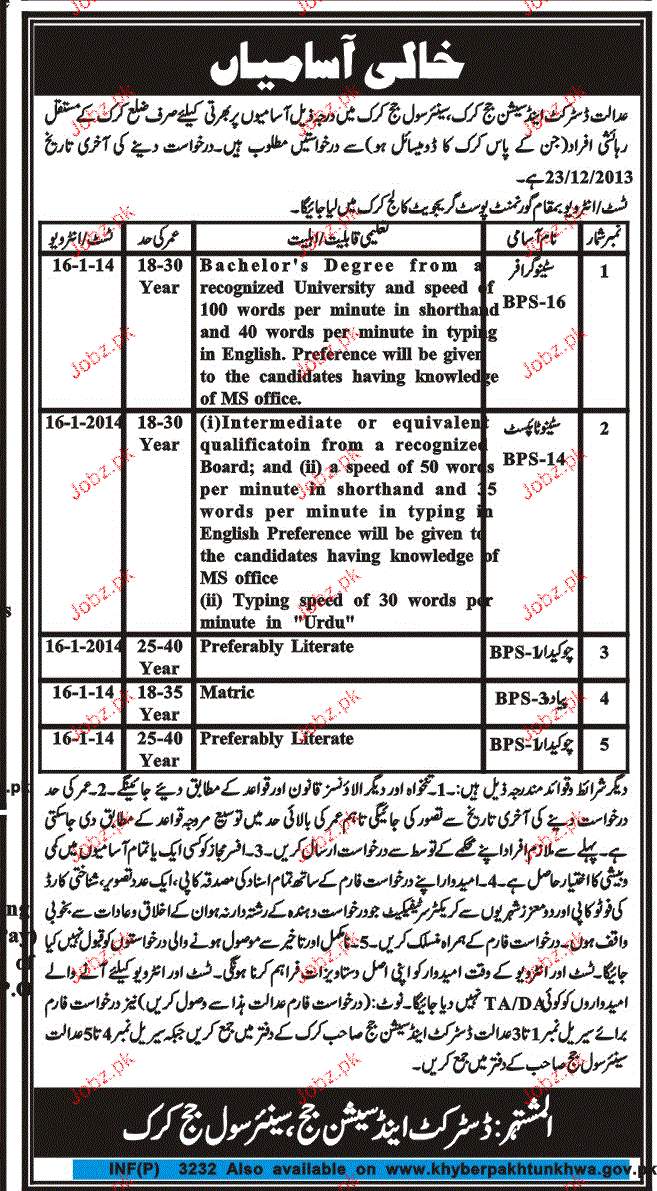 خالی آسامیاں
عدالت ڈسٹرکٹ اینڈ سیشن جج کرک، سینئر سول جج کرک میں درجہ ذیل آسامیوں پر بھرتی کیلئے صرف ضلع کرک کے مستقل
رہائشی افراد (جن کے پاس کرک کا ڈومیسائل ہو) سے درخواستیں مطلوب ہیں۔ درخواست دینے کی آخری تاریخ
23/12/2013 ہے۔
ٹسٹ/انٹرویو بمقام گورنمنٹ پوسٹ گریجویٹ کالج کرک میں لیا جائیگا۔
نمبر شمار نام آسامی تعلیمی قابلیت/اہلیت عمر کی حد ٹسٹ/انٹرویو
1
سٹینوگرافر
BPS-16
Bachelor's Degree from a
recognized University and speed of
100 words per minute in shorthand
and 40 words per minute in typing
in English. Preference will be given
to the candidates having knowledge
of MS office.
18-30
Year
16-1-14
2
سٹینو ٹائپسٹ
BPS-14
(i)Intermediate or equivalent
qualificatoin from a recognized
Board; and (ii) a speed of 50 words
per minute in shorthand and 35
words per minute in typing in
English Preference will be given to
the candidates having knowledge of
MS office
(ii) Typing speed of 30 words per
minute in "Urdu"
18-30
Year
16-1-2014
3
چوکیدار BPS-1
Preferably Literate
25-40
Year
16-1-2014
4
پیادہ BPS-3
Matric
18-35
Year
16-1-14
5
چوکیدار BPS-1
Preferably Literate
25-40
Year
16-1-14
دیگر شرائط و قوائد مندرجہ ذیل ہیں:۔ 1۔ تنخواہ اور دیگر الاؤنسز قانون اور قواعد کے مطابق دیئے جائینگے۔ 2۔ عمر کی حد
درخواست دینے کی آخری تاریخ سے تصور کی جائیگی تاہم عمر کی بالائی حد میں توسیع مروجہ قواعد کے مطابق دی جاسکتی
ہے۔ پہلے سے ملازم افراد اپنے محکمے کے توسط سے درخواست ارسال کریں۔ 3۔ افسر مجاز کو کسی ایک یا تمام آسامیوں میں کمی
و بیشی کا اختیار حاصل ہے۔ 4۔ امیدوار اپنے درخواست فارم کے ساتھ تمام اسناد کی مصدقہ کاپی، ایک عدد تصویر، شناختی کارڈ
کی فوٹو کاپی اور دو معزز شہریوں سے کریکٹر سرٹیفیکیٹ جو درخواست دہندہ کے رشتہ دار نہ ہو ان کے اخلاق و عادات سے بخوبی
واقف ہوں۔ درخواست فارم کے ہمراہ منسلک کریں۔ 5۔ نامکمل اور تاخیر سے موصول ہونے والی درخواستوں کو قبول نہیں کیا
جائیگا۔ ٹسٹ اور انٹرویو کے وقت امیدوار کو اپنی اصل دستاویزات فراہم کرنا ہونگی۔ ٹسٹ اور انٹرویو کیلئے آنے والے
امیدواروں کو کوئی TA/DA نہیں دیا جائیگا۔ نوٹ: (درخواست فارم عدالت ہذا سے وصول کریں) نیز درخواست فارم
برائے سیریل نمبر 1 تا 3 عدالت ڈسٹرکٹ اینڈ سیشن جج صاحب کرک کے دفتر میں جمع کریں جبکہ سیریل نمبر 4 تا 5 عدالت
سینئر سول جج صاحب کے دفتر میں جمع کریں۔
المشتہر: ڈسٹرکٹ اینڈ سیشن جج، سینئر سول جج کرک
INF(P) 3232 Also available on www.khyberpakhtunkhwa.gov.pk